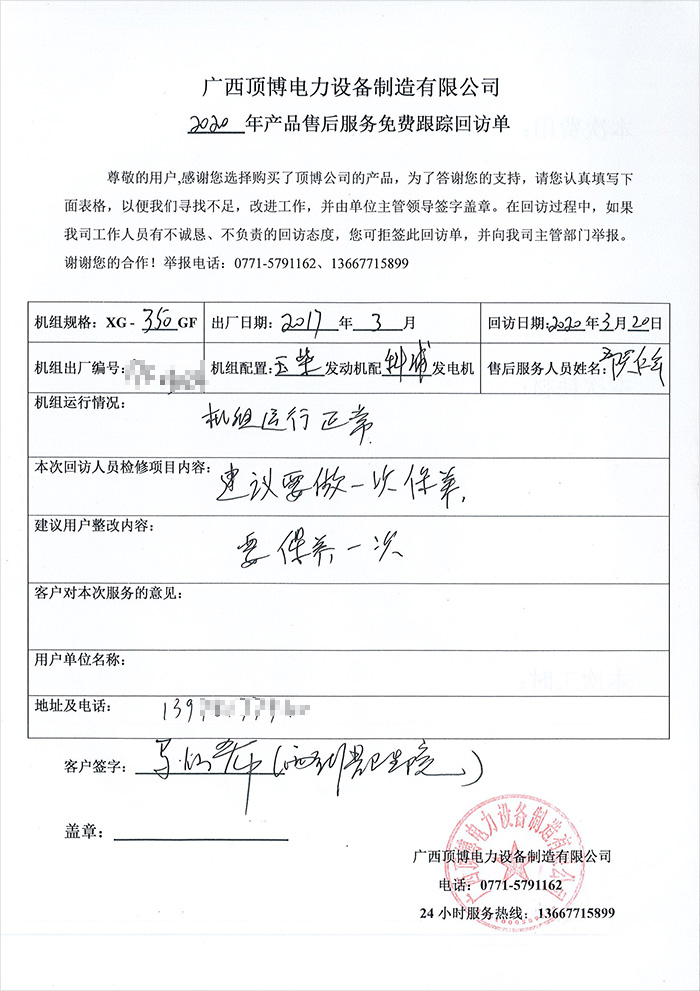 广西顶博电力设备制造有限公司
2020年产品售后服务免费跟踪回访单
尊敬的用户,感谢您选择购买了顶博公司的产品，为了答谢您的支持，请您认真填写下
面表格，以便我们寻找不足，改进工作，并由单位主管领导签字盖章。在回访过程中，如果
我司工作人员有不诚恳、不负责的回访态度，您可拒签此回访单，并向我司主管部门举报。
谢谢您的合作！举报电话：0771-5791162、13667715899
机组规格：XG - 350 GF 出厂日期：2017 年 3 月 回访日期：2020 年 3 月 20 日
机组出厂编号： 机组配置：玉柴发动机配科浦发电机 售后服务人员姓名：
机组运行情况：
机组运行正常
本次回访人员检修项目内容：
建议要做一次保养,
建议用户整改内容：
要保养一次
客户对本次服务的意见：
用户单位名称：
地址及电话： 139
客户签字： 卫生院
盖章：
广西顶博电力设备制造有限公司
广西顶博电力设备制造有限公司
电话：0771-5791162
24 小时服务热线：13667715899